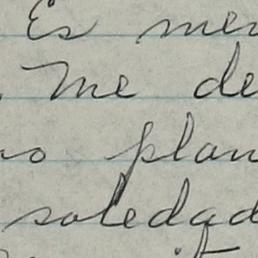 Es me
. Me de
no plan
soledad